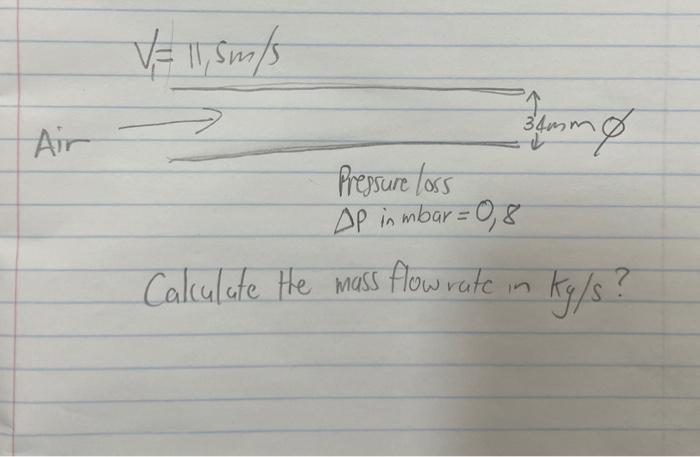 V₁= 11,5m/s
Air
34mm ∅
Pressure loss
Δp in mbar = 0,8
Calculate the mass flow rate in kg/s?